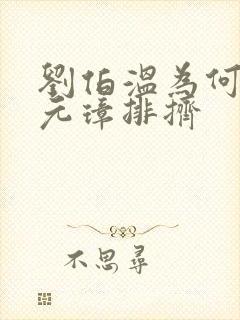 劉伯溫為何
元璋排擠
不思尋